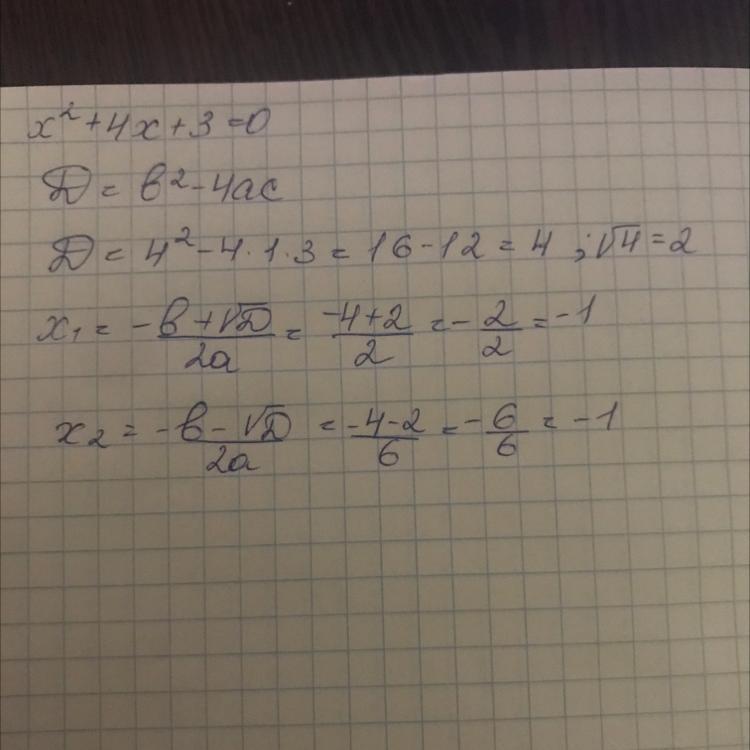 x² + 4x + 3 = 0
D = b² - 4ac
D = 4² - 4 · 1 · 3 = 16 - 12 = 4 ; √4 = 2
x₁ = -b + √D / 2a = -4 + 2 / 2 = - 2 / 2 = -1
x₂ = -b - √D / 2a = -4 - 2 / 6 = - 6 / 6 = -1